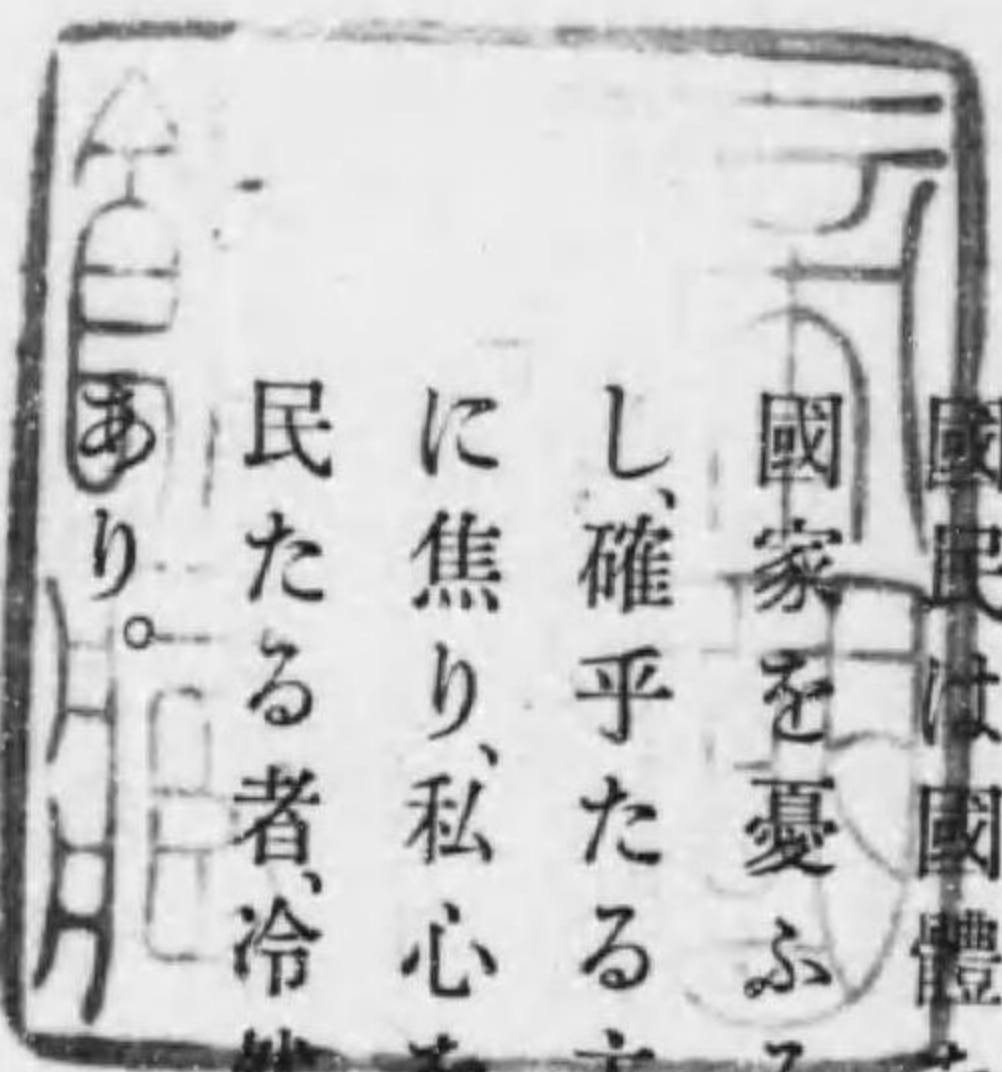 國民は國體
國家を憂ふ
し、確乎たる
に焦り、私心
民たる者、冷
あり。